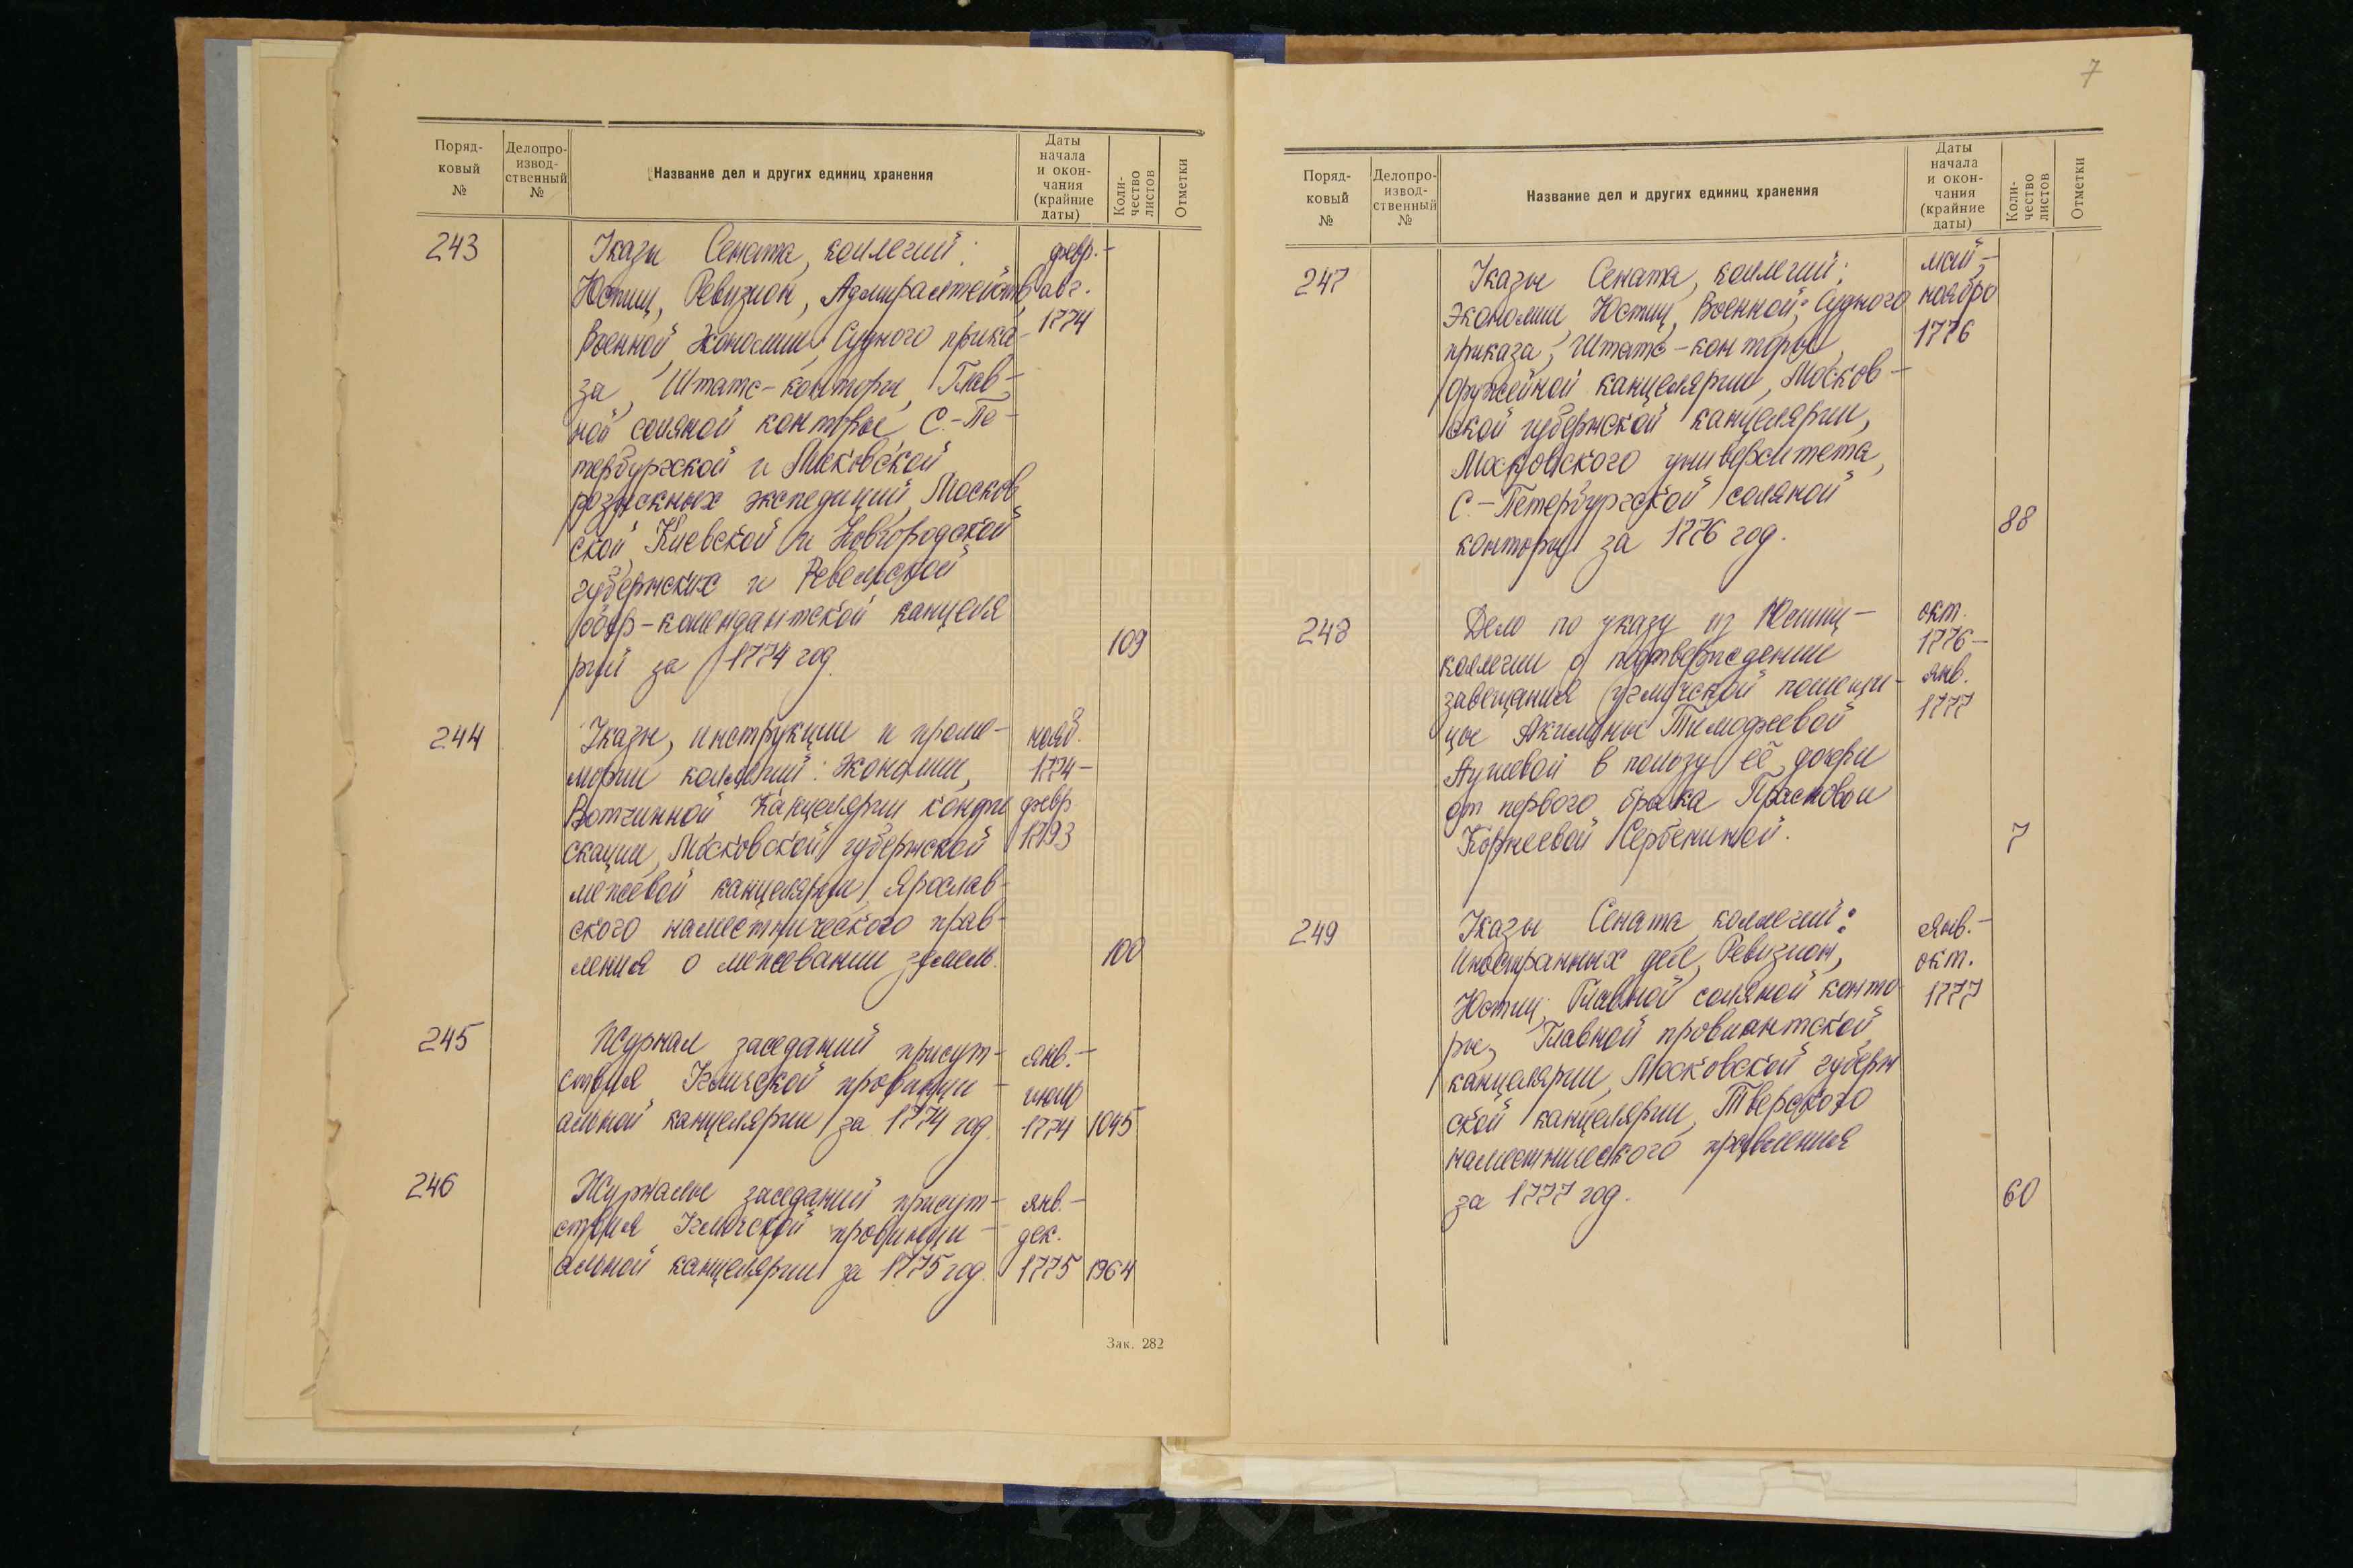 Поряд-
ковый
№
Делопро-
извод-
ственный
№
Название дел и других единиц хранения
Даты
начала
и окон-
чания
(крайние
даты)
Коли-
чество
листов
Отметки
243
Указы Сената, коллегий:
Юстиц, Ревизион, Адмиралтейств,
Военной, Экономии, Судного прика-
за, Штатс-конторы, Глав-
ной соляной конторы, С.-Пе-
тербургской и Московской
розыскных экспедиций, Москов
ской, Киевской и Новгородской
губернских и Ревельской
обер-комендантской канцеля
рий за 1774 год.
февр.-
авг.
1774
109
244
Указы, инструкции и проме-
мории коллегий: Экономии,
Вотчинной, Канцелярии конфи
скации, Московской губернской
межевой канцелярии, Ярослав-
ского наместнического прав-
ления о межевании земель.
нояб.
1774-
февр.
1793
100
245
Журнал заседаний присут-
ствия Угличской провинци-
альной канцелярии за 1774 год.
янв.-
июль
1774
1045
246
Журналы заседаний присут-
ствия Угличской провинци-
альной канцелярии за 1775 год.
янв.-
дек.
1775
1964
Зак. 282
7
Поряд-
ковый
№
Делопро-
извод-
ственный
№
Название дел и других единиц хранения
Даты
начала
и окон-
чания
(крайние
даты)
Коли-
чество
листов
Отметки
247
Указы Сената, коллегий:
Экономии, Юстиц, Военной; Судного
приказа, Штатс-конторы,
Оружейной канцелярии, Москов-
ской губернской канцелярии,
Московского университета,
С.-Петербургской соляной
конторы за 1776 год.
май-
ноябрь
1776
88
248
Дело по указу из Юстиц-
коллегии о подтверждении
завещания угличской помещи-
цы Акилины Тимофеевой
в пользу её дочери
от первого брака Прасковьи
Корнеевой Сербениной.
окт.
1776-
янв.
1777
7
249
Указы Сената, коллегий:
Иностранных дел, Ревизион,
Юстиц, Главной соляной конто
ры, Главной провиантской
канцелярии, Московской губерн
ской канцелярии, Тверского
наместнического правления
за 1777 год.
янв.-
окт.
1777
60